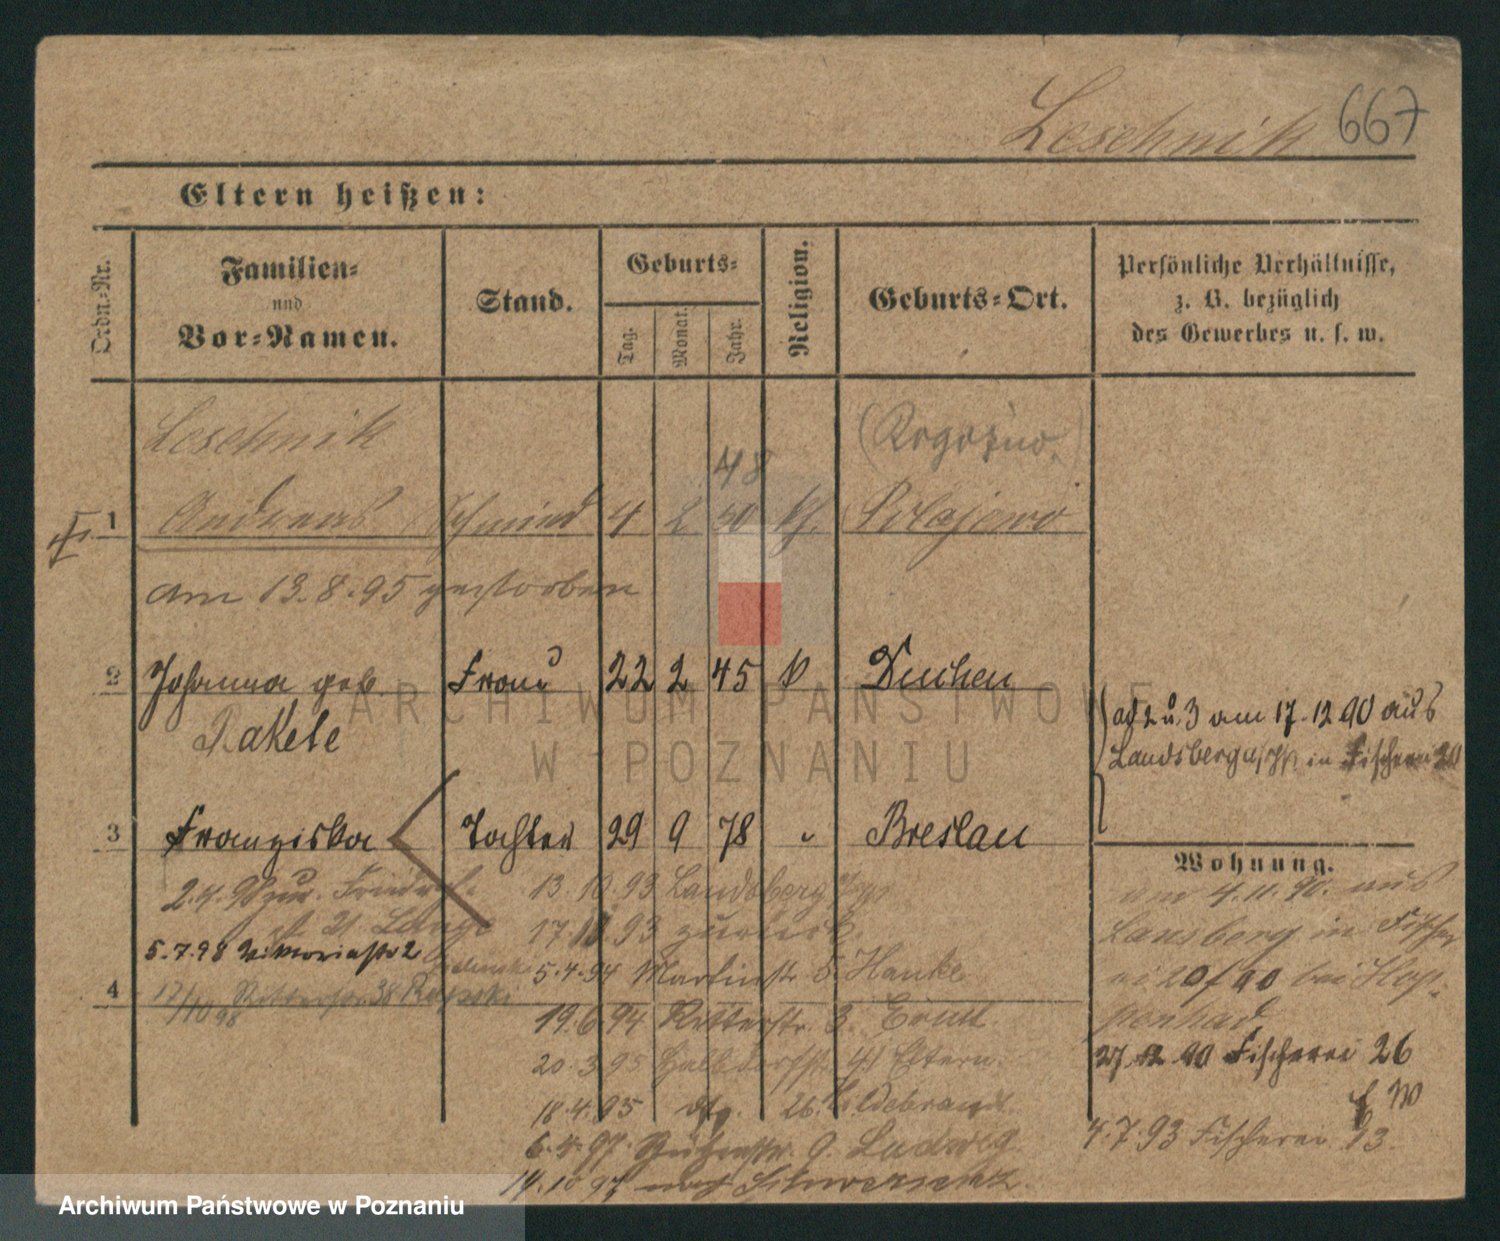 Leschnik 667
Eltern heißen:
Ordn.-Nr.
Familien-
und
Vor-Namen.
Stand.
Geburts-
Tag.
Monat.
Jahr.
Religion.
Geburts-Ort.
Persönliche Verhältnisse,
z. B. bezüglich
des Gewerbes u. s. w.
Leschnik
(Rogozno)
48
1 Andreas Schmied 4 2 40 kth. Polajewo
am 13.8.95 gestorben
2 Johanna geb. Frau 22 2 45 k
Rakete
ad 2 u. 3 am 17.12.90 aus
Landsberg in Fischerei 20
3 Franziska Tochter 29 9 78 " Breslau
Wohnung.
am 4.11.90. aus
Lansberg in Fischer
ei 20/90 bei Hop-
penhad
27.12.90 Fischerei 26
4.7.93 Fischerei 13.
2.4.98 zur.
13.10.93 Landsberg
17.10.93 zurück
5.7.98 Viktoriastr 2
5.4.94 Martinstr 5. Hanke
4 17/10 98 Ritterstr. 38
19.6.94 Ritterstr. 3. Ernst
20.3.95 Halbdorfstr 41 Eltern.
18.4.95 dto. 26. Hildebrandt
6.4.97 9. Ludwig
14.10.97 nach Schwersenz
ARCHIWUM PAŃSTWOWE
W POZNANIU
Archiwum Państwowe w Poznaniu